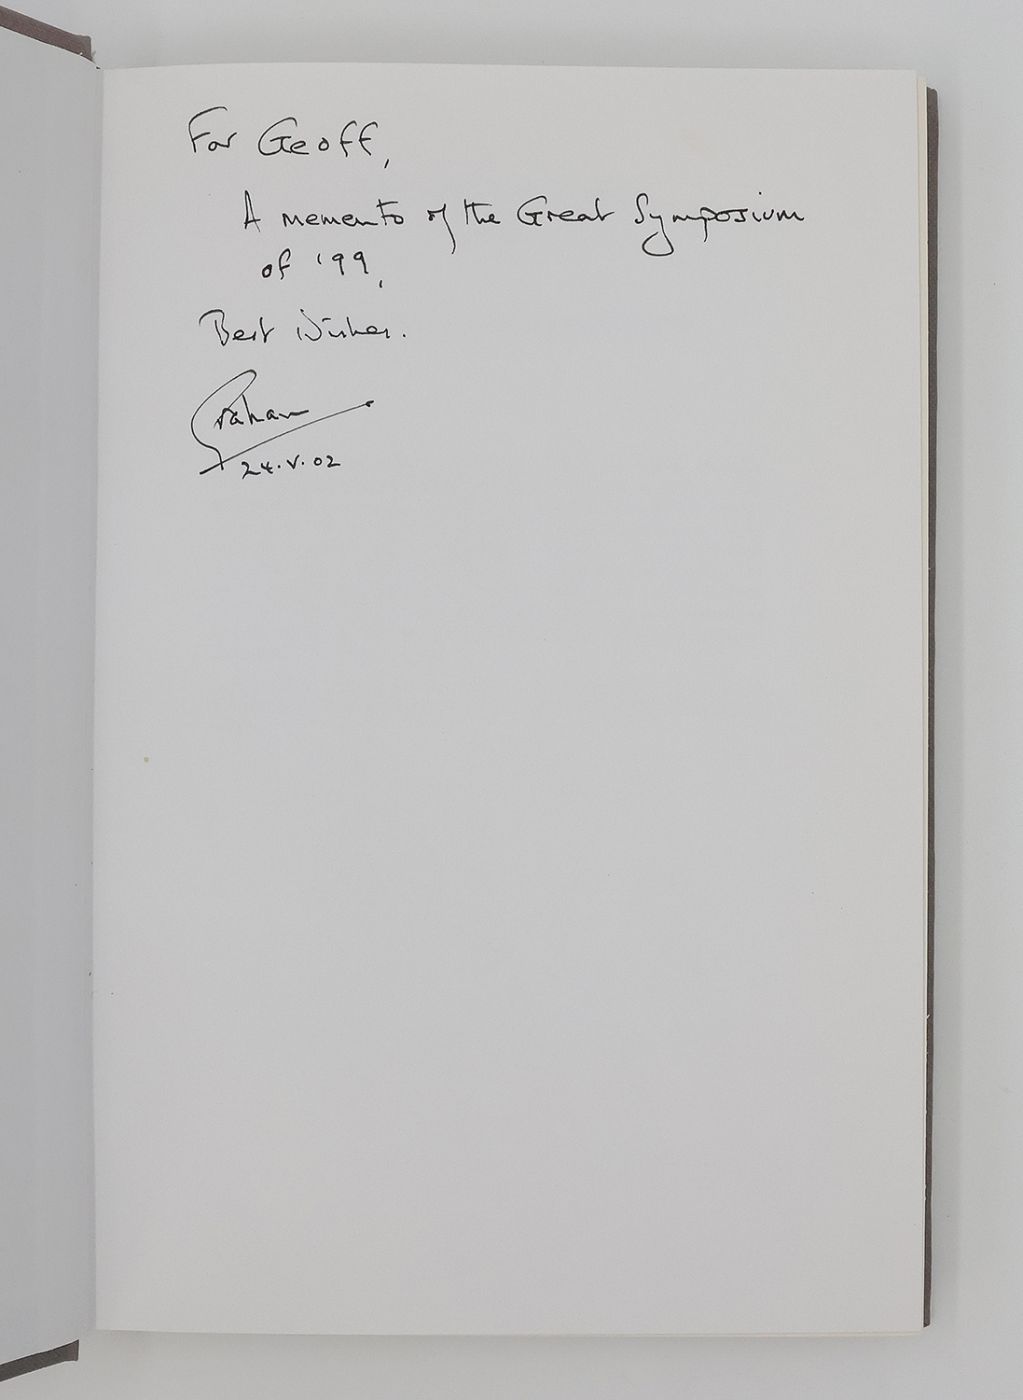 For Geoff,
A memento of the Great Symposium
of '99,
Best Wishes.
Graham
24.V.02